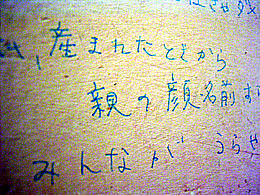 、産まれたときから
親の顔名前す
みんながうらや